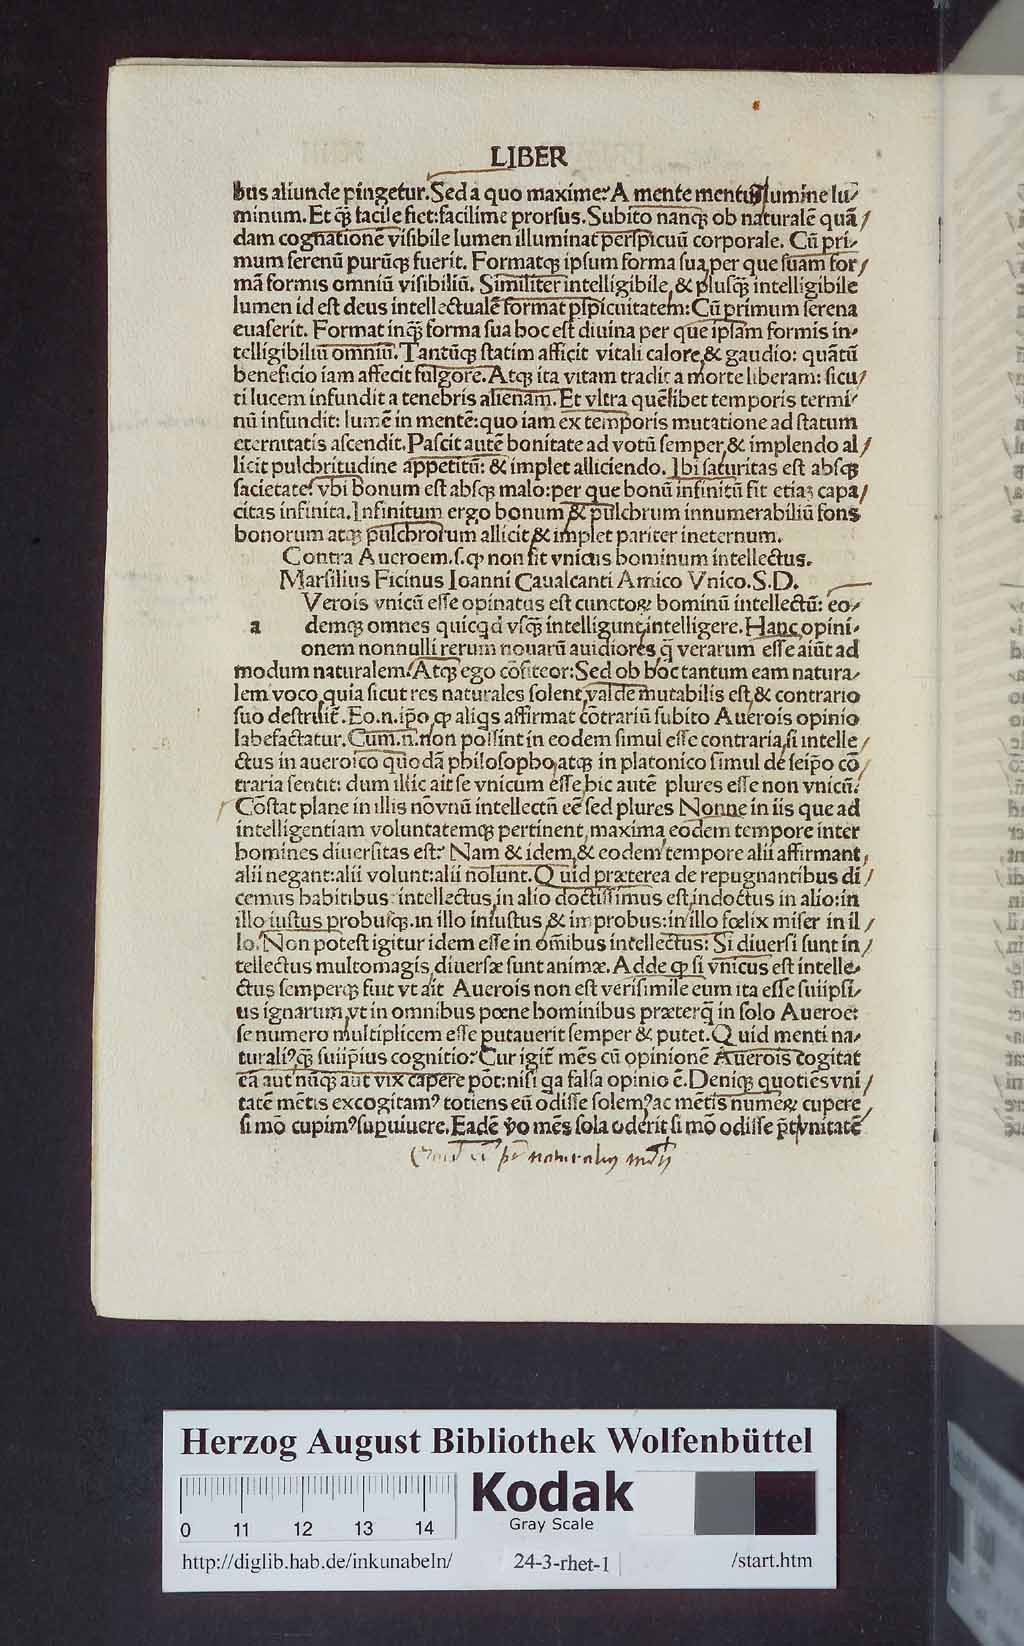 LIBER
bus aliunde pingetur. Sed a quo maxime? A mente mentiũ lumine lu-
minum. Et q̃ꝫ facile fiet: facilime prorsus. Subito nanqꝫ ob naturalẽ quã
dam cognationẽ visibile lumen illuminat perspicuũ corporale. Cũ pri-
mum serenũ purũqꝫ fuerit. Formatqꝫ ipsum forma sua per que suam for
mã formis omniũ visibiliũ. Similiter intelligibile, & plusq̃ꝫ intelligibile
lumen id est deus intellectualẽ format p̱spicuitatem: Cũ primum serena
euaserit. Format inq̃ꝫ forma sua hoc est diuina per que ipsam formis in-
telligibiliũ omniũ. Tantũqꝫ statim afficit vitali calore, & gaudio: quãtũ
beneficio iam affecit fulgore. Atqꝫ ita vitam tradit a morte liberam: sicu
ti lucem infundit a tenebris alienam. Et vltra quẽlibet temporis termi-
nũ infundit: lumẽ in mentẽ: quo iam ex temporis mutatione ad statum
eternitatis ascendit. Pascit autẽ bonitate ad votũ semper, & implendo al
licit pulchritudine appetitũ: & implet alliciendo. Ibi saturitas est absqꝫ
sacietate: vbi bonum est absqꝫ malo: per que bonũ infinitũ fit etiaꝫ capa
citas infinita. Infinitum ergo bonum & pulchrum innumerabiliũ fons
bonorum atqꝫ pulchrorum allicit & implet pariter ineternum.
Contra Aueroem. s. ꝙ non sit vnicus hominum intellectus.
Marsilius Ficinus Ioanni Caualcanti Amico Vnico. S. D.
Verois vnicũ esse opinatus est cunctoꝝ hominũ intellectũ: eo-
a demqꝫ omnes quicqd vsq̃ꝫ intelligunt, intelligere. Hanc opini-
onem nonnulli rerum nouarũ auidiores q̃ verarum esse aiũt ad
modum naturalem. Atqꝫ ego cõfiteor: Sed ob hoc tantum eam natura-
lem voco, quia sicut res naturales solent, valde mutabilis est, & contrario
suo destruit̃. Eo. n. ip̃o, ꝙ aliqs affirmat cõtrariũ subito Auerois opinio
labefactatur. Cum. n. non possint in eodem simul esse contraria, si intelle
ctus in aueroico quodã philosopho, atqꝫ in platonico simul de seip̃o cõ
traria sentit: dum illic ait se vnicum esse, hic autẽ plures esse non vnicũ:
Cõstat plane in illis nõ vnũ intellectũ eẽ sed plures Nonne in iis que ad
intelligentiam voluntatemqꝫ pertinent, maxima, eodem tempore inter
homines diuersitas est? Nam & idem, & eodem tempore alii affirmant,
alii negant: alii volunt: alii nolunt. Quid præterea de repugnantibus di
cemus habitibus: intellectus, in alio doctissimus est, indoctus in alio: in
illo iustus probusqꝫ. in illo iniustus, & improbus: in illo fœlix miser in il
lo. Non potest igitur idem esse in om̃ibus intellectus: Si diuersi sunt in
tellectus multomagis, diuersæ sunt animæ. Adde ꝙ si vnicus est intelle-
ctus semperqꝫ fuit vt ait Auerois non est verisimile eum ita esse suiipsi-
us ignarum, vt in omnibus pœne hominibus præterq̃ in solo Aueroe:
se numero multiplicem esse putauerit semper & putet. Quid menti na-
turaliꝰ, q̃ꝫ suiipsius cognitio? Cur igit̃ mẽs cũ opinionẽ Auerois cogitat
eã aut nũqꝫ aut vix capere põt: nisi qa falsa opinio ẽ. Deniqꝫ quotiẽs vni
tatẽ mẽtis excogitamꝰ totiens eũ odisse solemꝰ, ac mẽtis numeꝝ cupere,
si mõ cupimꝰ sup̱uiuere. Eadẽ ṽo mẽs sola oderit si mõ odisse p̃t vnitatẽ
Herzog August Bibliothek Wolfenbüttel
0 11 12 13 14
Kodak
Gray Scale
http://diglib.hab.de/inkunabeln/ 24-3-rhet-1 /start.htm